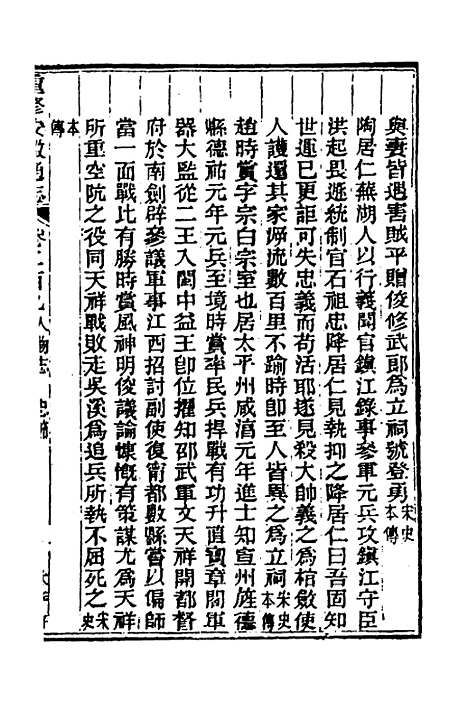 與妻皆遇害賊平贈俊修武郎為立祠號登勇宋史本傳
陶居仁蕪湖人以行義聞官鎮江錄事參軍元兵攻鎮江守臣
洪起畏遯統制官石祖忠降居仁見執抑之降居仁曰吾固知
世運已更詎可失忠義而苟活耶遂見殺大帥義之為棺斂使
人護還其家㴑流數百里不踰時卽至人皆異之為立祠宋史本傳
趙時賞字宗白宗室也居太平州咸淳元年進士知宣州旌德
縣德祐元年元兵至境時賞率民兵捍戰有功升直寶章閣軍
器大監從二王入閩中益王卽位擢知邵武軍文天祥開都督
府於南劍辟參議軍事江西招討副使復甯都數縣嘗以偏師
當一面戰比有勝時賞風神明俊議論慷慨有策謀尤為天祥
所重空阬之役同天祥戰敗走吳溪為追兵所執不屈死之宋史
本傳
重修安徽通志 卷二百 人物志 忠節